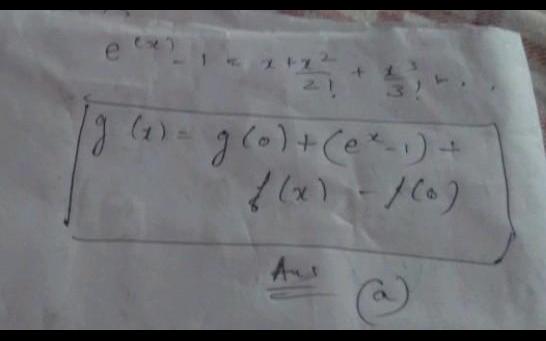 e^(x) - 1 = x + x^2/2! + x^3/3! + . .
g(x) = g(0) + (e^x - 1) +
f(x) - f(0)
Ans (a)